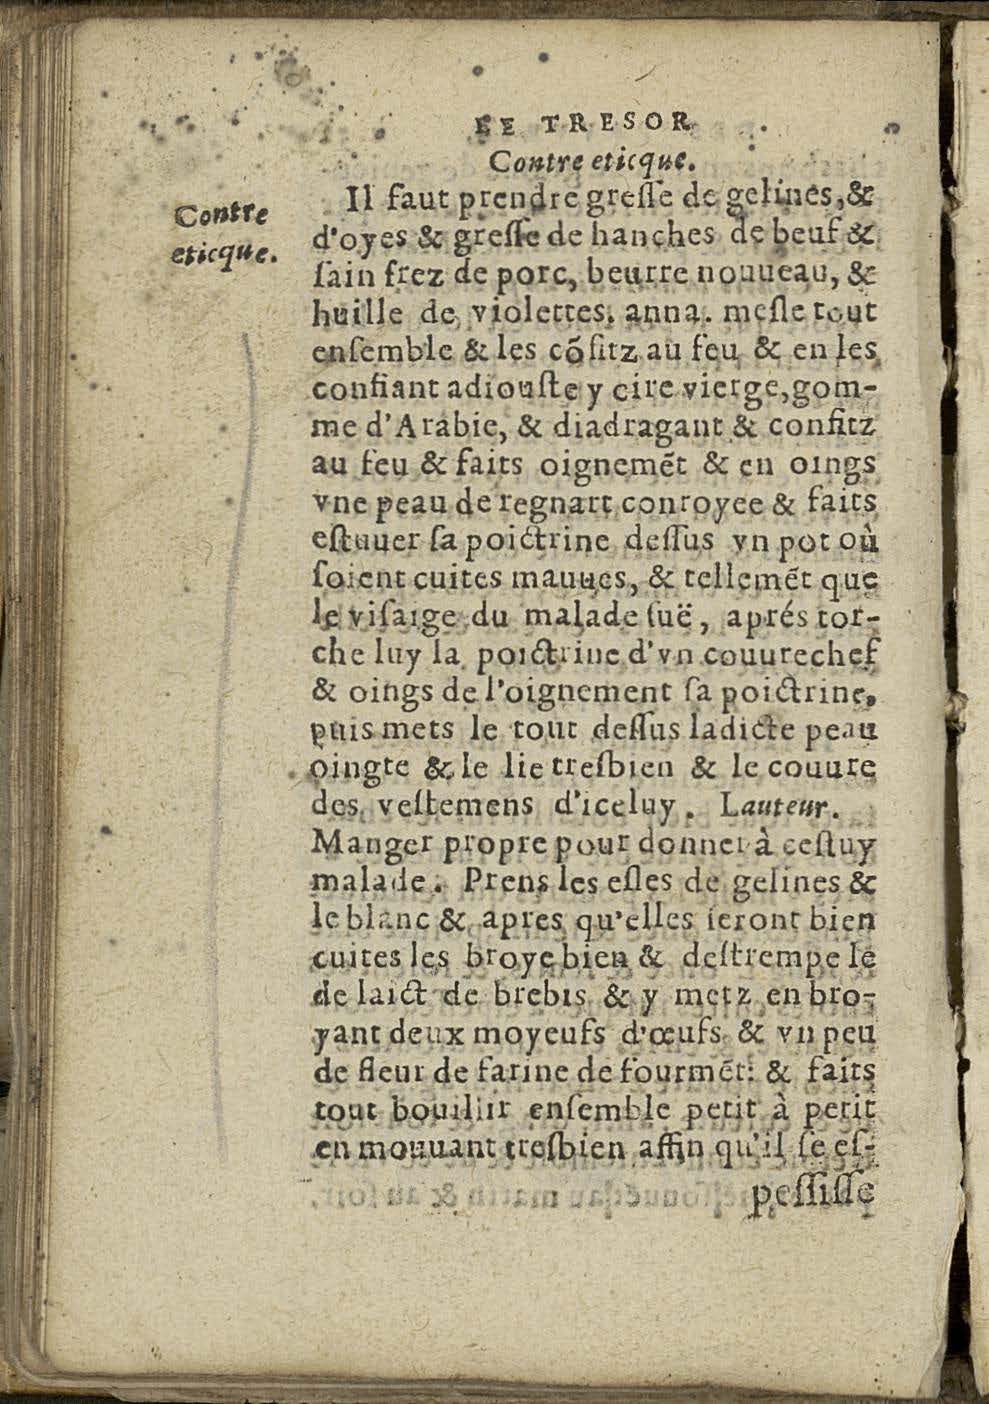 LE TRESOR
Contre eticque.
Contre
eticque.
Il faut prendre gresse de gelines, &
d'oyes & gresse de hanches de beuf &
sain frez de porc, beurre nouueau, &
huille de violettes. anna. mesle tout
ensemble & les cõfitz au feu & en les
confiant adiouste y cire vierge, gom-
me d'Arabie, & diadragant & confitz
au feu & faits oignemẽt & en oings
vne peau de regnart conroyee & faits
estuuer sa poictrine dessus vn pot où
soient cuites mauues, & tellemẽt que
le visaige du malade suë, aprés tor-
che luy la poictrine d'vn couurechef
& oings de l'oignement sa poictrine,
puis mets le tout dessus ladicte peau
oingte & le lie tresbien & le couure
des vestemens d'iceluy. Lauteur.
Manger propre pour donner à cestuy
malade. Prens les esles de gelines &
le blanc & apres qu'elles seront bien
cuites les broye bien & destrempe le
de laict de brebis & y metz en bro-
yant deux moyeufs d'œufs & vn peu
de fleur de farine de fourmẽt: & faits
tout bouillir ensemble petit à petit
en mouuant tresbien affin qu'il se es-
pessisse